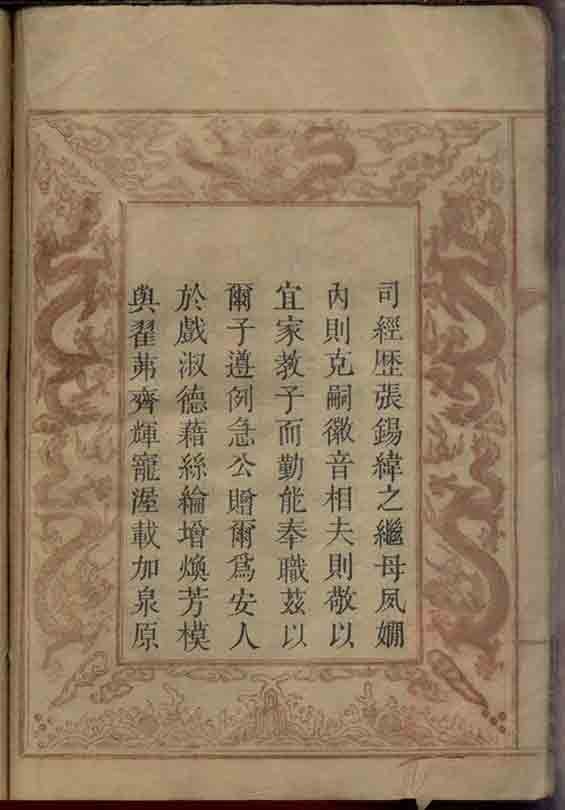 司經歴張錫緯之繼母夙嫺
内則克嗣徽音相夫則敬以
宜家教子而勤能奉職茲以
爾子遵例急公贈爾爲安人
於戲淑德藉絲綸增煥芳模
與翟茀齊輝寵渥載加泉原